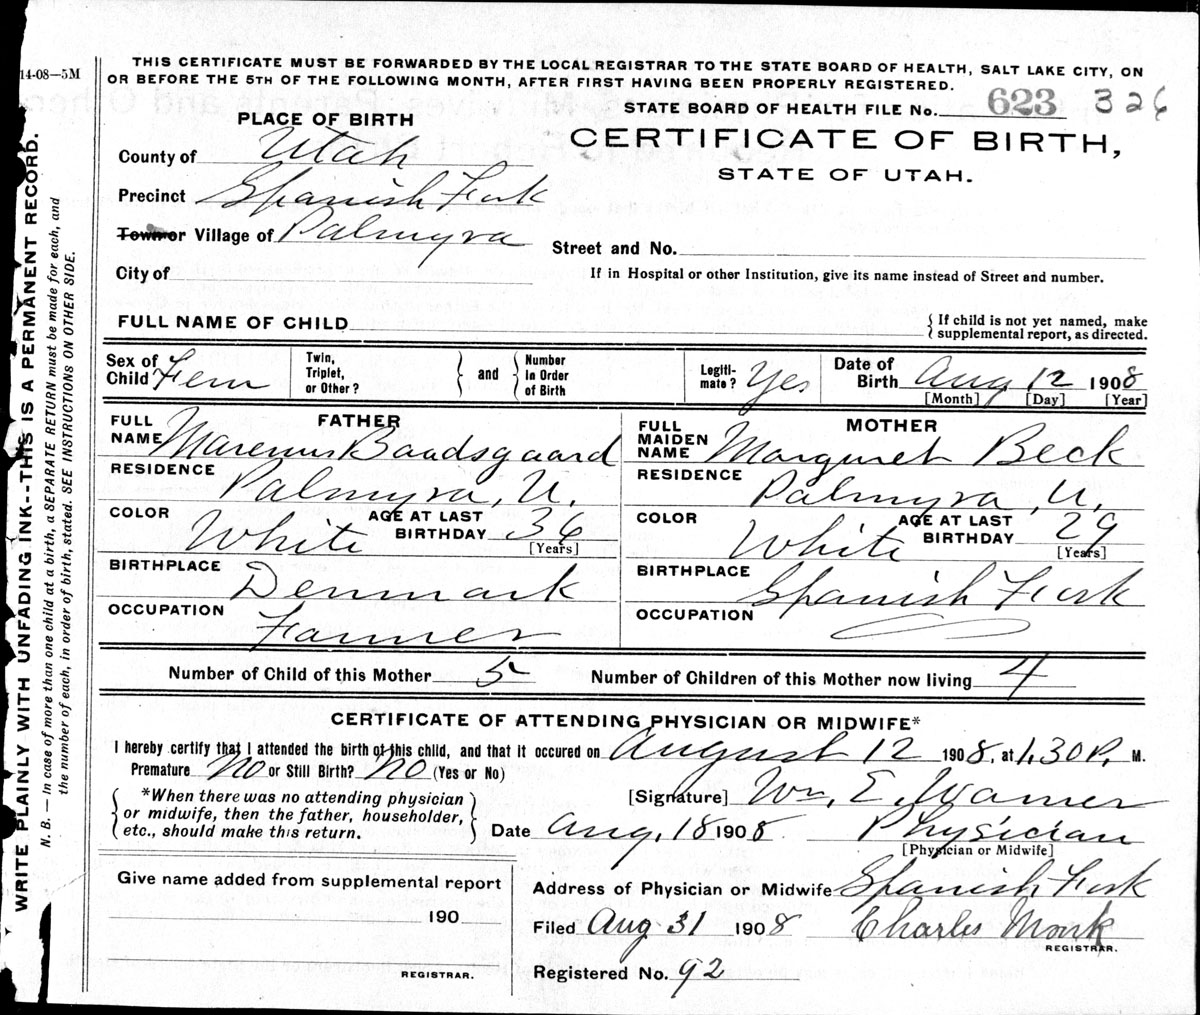 14-08—5M
THIS CERTIFICATE MUST BE FORWARDED BY THE LOCAL REGISTRAR TO THE STATE BOARD OF HEALTH, SALT LAKE CITY, ON
OR BEFORE THE 5TH OF THE FOLLOWING MONTH, AFTER FIRST HAVING BEEN PROPERLY REGISTERED.
STATE BOARD OF HEALTH FILE No. 623 326
PLACE OF BIRTH
CERTIFICATE OF BIRTH,
STATE OF UTAH.
County of Utah
Precinct Spanish Fork
Town or Village of Palmyra
Street and No.
City of
If in Hospital or other Institution, give its name instead of Street and number.
FULL NAME OF CHILD
{If child is not yet named, make
supplemental report, as directed.
Sex of Child Fem
Twin, Triplet, or Other? } and { Number in Order of Birth
Legiti-mate? Yes
Date of Birth Aug 12 1908
[Month] [Day] [Year]
FATHER
FULL NAME Marenus Baadsgaard
RESIDENCE Palmyra, U.
COLOR White AGE AT LAST BIRTHDAY 36
[Years]
BIRTHPLACE Denmark
OCCUPATION Farmer
MOTHER
FULL MAIDEN NAME Margaret Beck
RESIDENCE Palmyra, U.
COLOR White AGE AT LAST BIRTHDAY 29
[Years]
BIRTHPLACE Spanish Fork
OCCUPATION
Number of Child of this Mother 5 Number of Children of this Mother now living 4
CERTIFICATE OF ATTENDING PHYSICIAN OR MIDWIFE*
I hereby certify that I attended the birth of this child, and that it occured on August 12 1908, at 1.30 P. M.
Premature No or Still Birth? No (Yes or No)
{ *When there was no attending physician
or midwife, then the father, householder,
etc., should make this return. }
[Signature] Wm. E. Warner
Date Aug. 18 1908 Physician
[Physician or Midwife]
Give name added from supplemental report
190
REGISTRAR.
Address of Physician or Midwife Spanish Fork
Filed Aug 31 1908 Charles Monk
REGISTRAR.
Registered No. 92
WRITE PLAINLY WITH UNFADING INK--THIS IS A PERMANENT RECORD.
N. B. — In case of more than one child at a birth, a SEPARATE RETURN must be made for each, and
the number of each, in order of birth, stated. SEE INSTRUCTIONS ON OTHER SIDE.